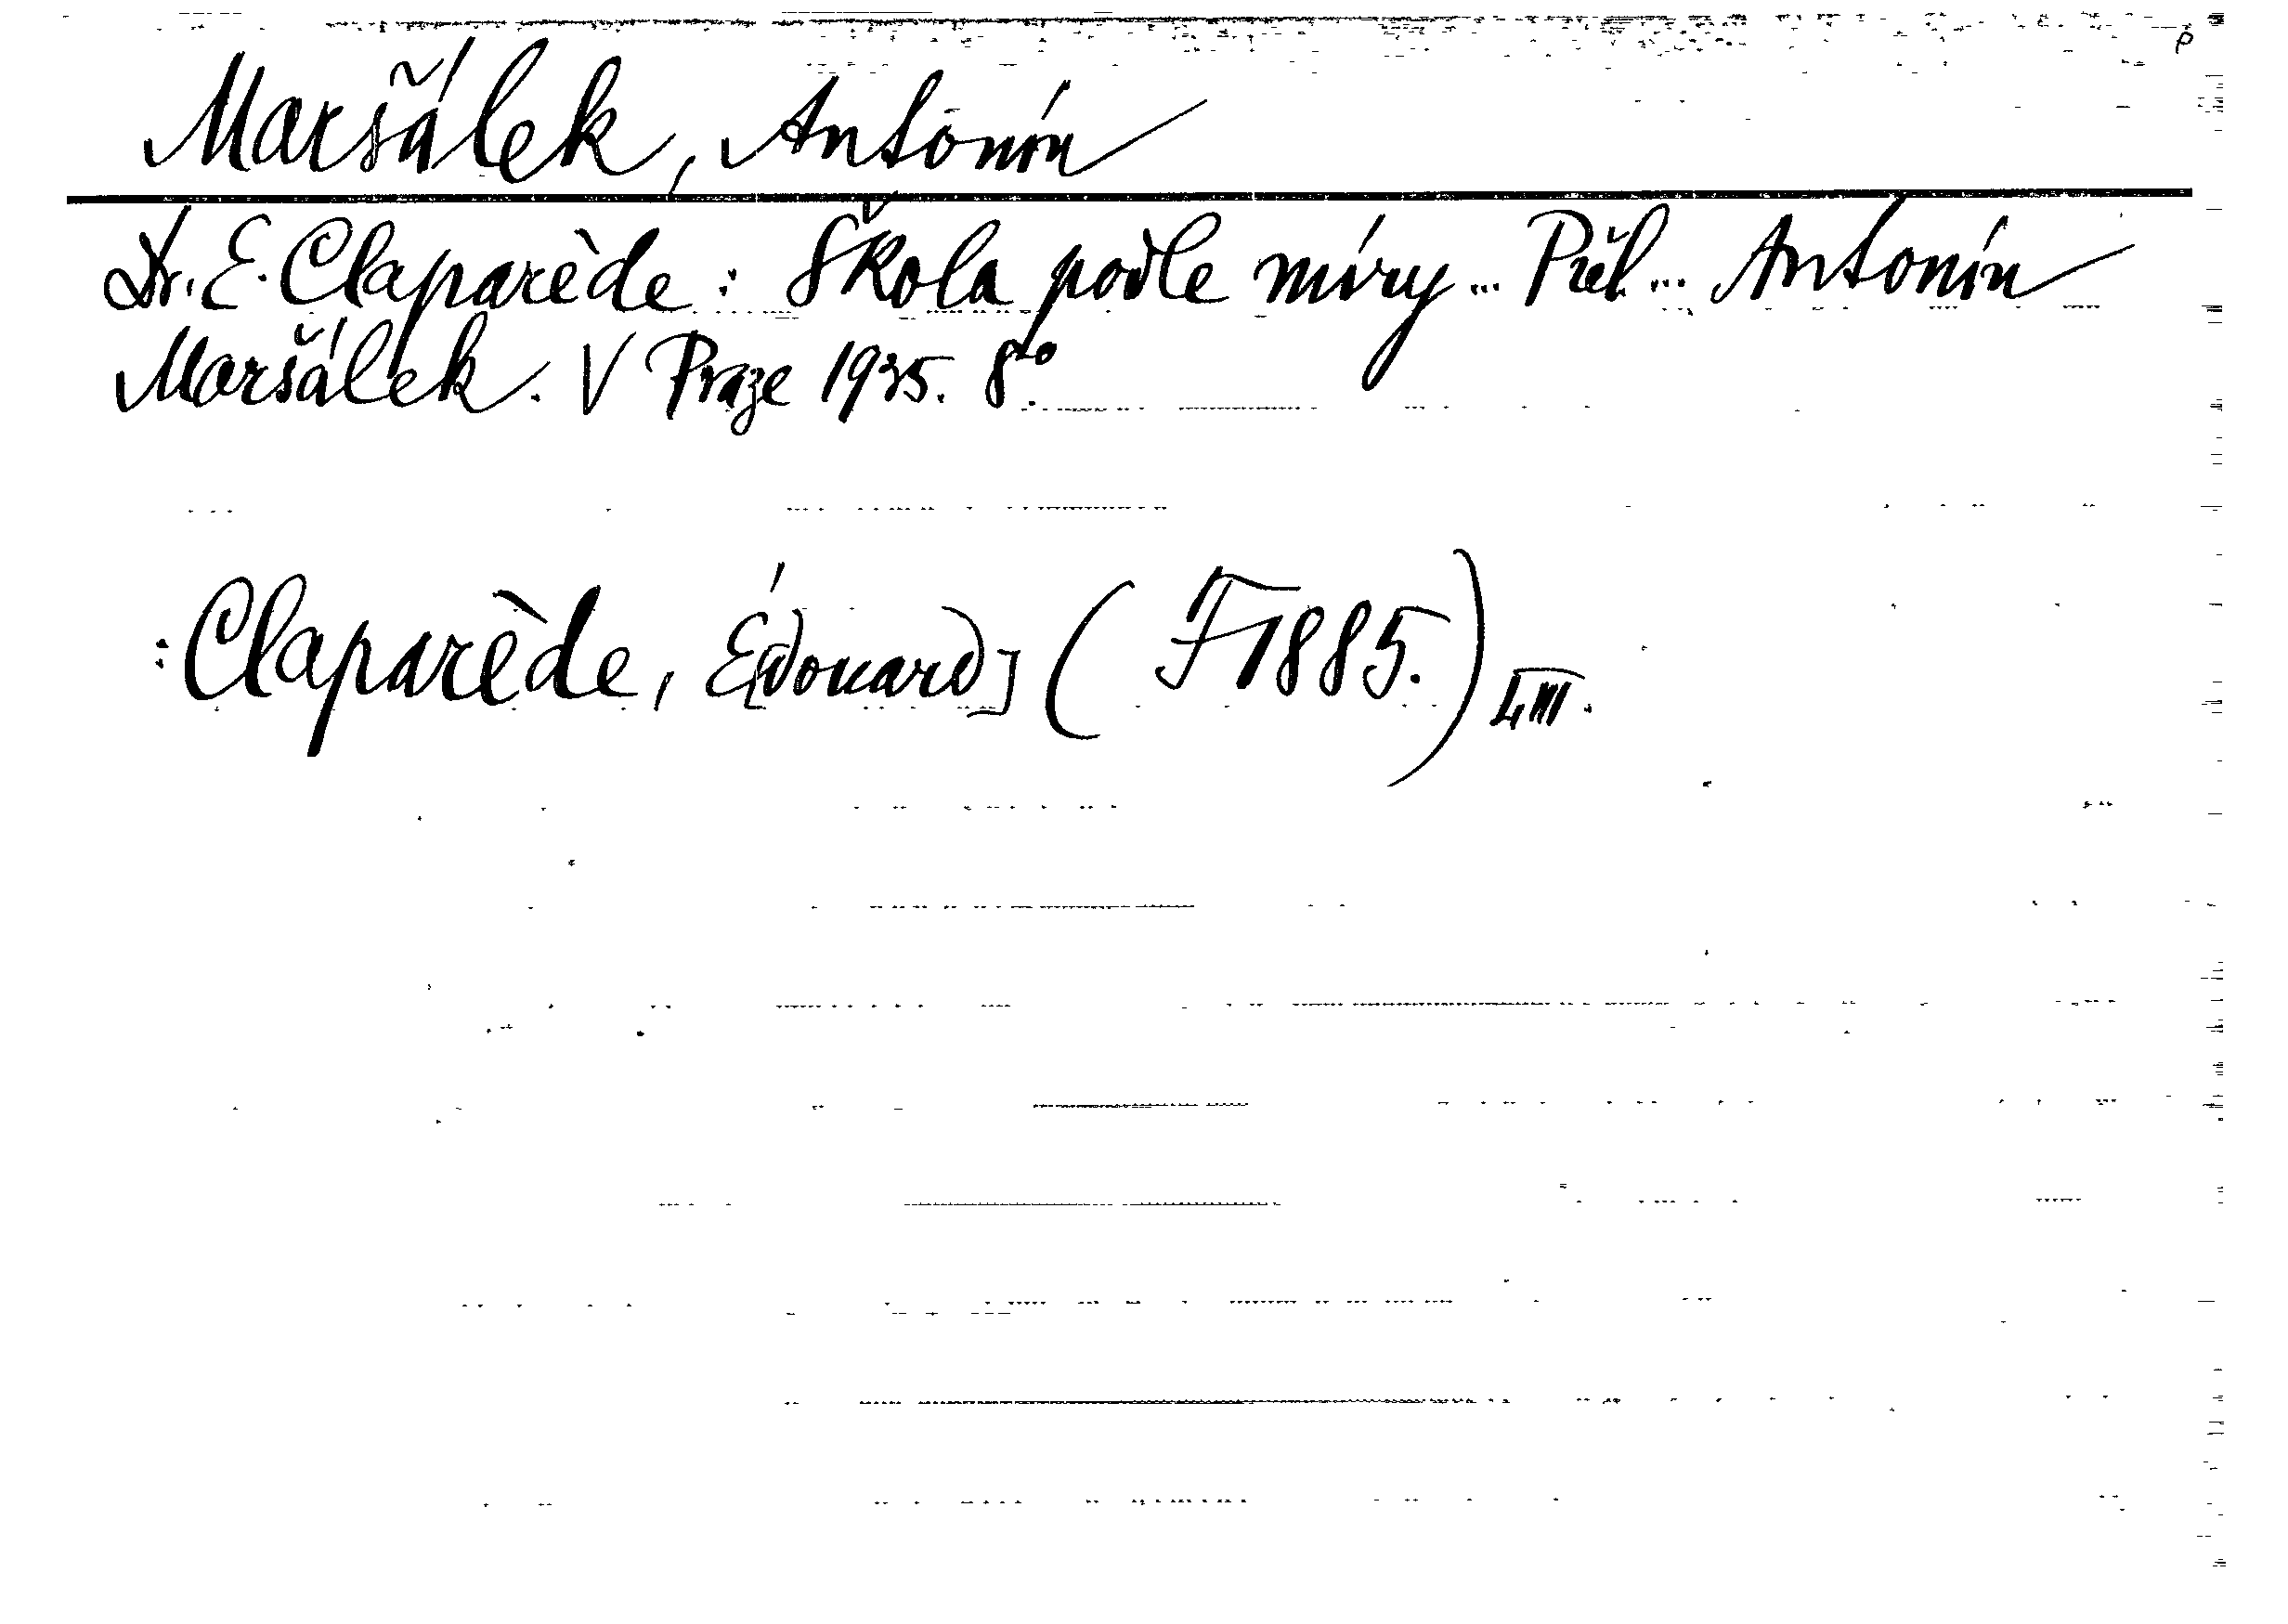 Maršálek, Antonín
Dr. E. Claparède: Škola podle míry... Přel... Antonín
Maršálek. V Praze 1935. 8°.
: Claparède, É[douard] (F 1885.) LIII.